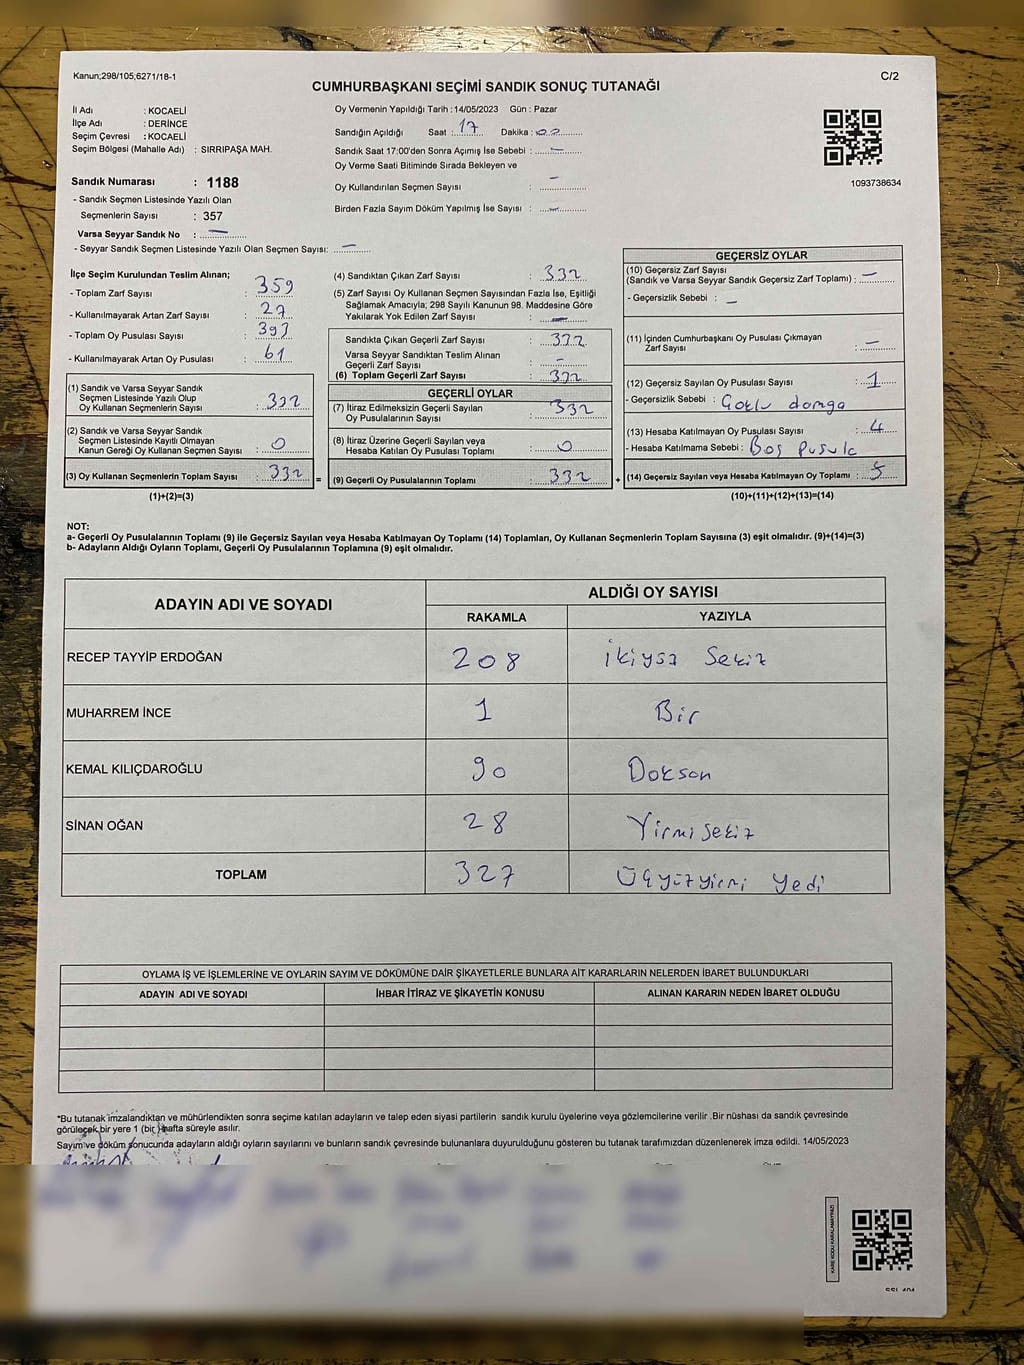 Kanun;298/105;6271/18-1
C/2
CUMHURBAŞKANI SEÇİMİ SANDIK SONUÇ TUTANAĞI
İl Adı : KOCAELİ
İlçe Adı : DERİNCE
Seçim Çevresi : KOCAELİ
Seçim Bölgesi (Mahalle Adı) : SIRRIPAŞA MAH.
Sandık Numarası : 1188
- Sandık Seçmen Listesinde Yazılı Olan
Seçmenlerin Sayısı : 357
Varsa Seyyar Sandık No : —
- Seyyar Sandık Seçmen Listesinde Yazılı Olan Seçmen Sayısı: —
Oy Vermenin Yapıldığı Tarih : 14/05/2023 Gün : Pazar
Sandığın Açıldığı Saat : 17 Dakika : 00
Sandık Saat 17:00'den Sonra Açımış İse Sebebi : —
Oy Verme Saati Bitiminde Sırada Bekleyen ve
Oy Kullandırılan Seçmen Sayısı : —
Birden Fazla Sayım Döküm Yapılmış İse Sayısı : —
1093738634
İlçe Seçim Kurulundan Teslim Alınan;
- Toplam Zarf Sayısı : 359
- Kullanılmayarak Artan Zarf Sayısı : 27
- Toplam Oy Pusulası Sayısı : 393
- Kullanılmayarak Artan Oy Pusulası : 61
(1) Sandık ve Varsa Seyyar Sandık
Seçmen Listesinde Yazılı Olup
Oy Kullanan Seçmenlerin Sayısı : 332
(2) Sandık ve Varsa Seyyar Sandık
Seçmen Listesinde Kayıtlı Olmayan
Kanun Gereği Oy Kullanan Seçmen Sayısı : 0
(3) Oy Kullanan Seçmenlerin Toplam Sayısı : 332 =
(1)+(2)=(3)
(4) Sandıktan Çıkan Zarf Sayısı : 332
(5) Zarf Sayısı Oy Kullanan Seçmen Sayısından Fazla İse, Eşitliği
Sağlamak Amacıyla; 298 Sayılı Kanunun 98. Maddesine Göre
Yakılarak Yok Edilen Zarf Sayısı : —
Sandıkta Çıkan Geçerli Zarf Sayısı : 332
Varsa Seyyar Sandıktan Teslim Alınan
Geçerli Zarf Sayısı : —
(6) Toplam Geçerli Zarf Sayısı : 332
GEÇERLİ OYLAR
(7) İtiraz Edilmeksizin Geçerli Sayılan
Oy Pusulalarının Sayısı : 332
(8) İtiraz Üzerine Geçerli Sayılan veya
Hesaba Katılan Oy Pusulası Toplamı : 0
(9) Geçerli Oy Pusulalarının Toplamı : 332 +
GEÇERSİZ OYLAR
(10) Geçersiz Zarf Sayısı
(Sandık ve Varsa Seyyar Sandık Geçersiz Zarf Toplamı) : —
- Geçersizlik Sebebi : —
(11) İçinden Cumhurbaşkanı Oy Pusulası Çıkmayan
Zarf Sayısı : —
(12) Geçersiz Sayılan Oy Pusulası Sayısı : 1
- Geçersizlik Sebebi : damga
(13) Hesaba Katılmayan Oy Pusulası Sayısı : 4
- Hesaba Katılmama Sebebi : Boş Pusula
(14) Geçersiz Sayılan veya Hesaba Katılmayan Oy Toplamı : 5
(10)+(11)+(12)+(13)=(14)
NOT:
a- Geçerli Oy Pusulalarının Toplamı (9) ile Geçersiz Sayılan veya Hesaba Katılmayan Oy Toplamı (14) Toplamları, Oy Kullanan Seçmenlerin Toplam Sayısına (3) eşit olmalıdır. (9)+(14)=(3)
b- Adayların Aldığı Oyların Toplamı, Geçerli Oy Pusulalarının Toplamına (9) eşit olmalıdır.
ADAYIN ADI VE SOYADI
ALDIĞI OY SAYISI
RAKAMLA YAZIYLA
RECEP TAYYİP ERDOĞAN 208 İkiyüz Sekiz
MUHARREM İNCE 1 Bir
KEMAL KILIÇDAROĞLU 90 Doksan
SİNAN OĞAN 28 Yirmi Sekiz
TOPLAM 327 Üçyüzyirmi Yedi
OYLAMA İŞ VE İŞLEMLERİNE VE OYLARIN SAYIM VE DÖKÜMÜNE DAİR ŞİKAYETLERLE BUNLARA AİT KARARLARIN NELERDEN İBARET BULUNDUKLARI
ADAYIN ADI VE SOYADI İHBAR İTİRAZ VE ŞİKAYETİN KONUSU ALINAN KARARIN NEDEN İBARET OLDUĞU
*Bu tutanak imzalandıktan ve mühürlendikten sonra seçime katılan adayların ve talep eden siyasi partilerin sandık kurulu üyelerine veya gözlemcilerine verilir .Bir nüshası da sandık çevresinde
görülecek bir yere 1 (bir) hafta süreyle asılır.
Sayım ve döküm sonucunda adayların aldığı oyların sayılarını ve bunların sandık çevresinde bulunanlara duyurulduğunu gösteren bu tutanak tarafımızdan düzenlenerek imza edildi. 14/05/2023
KARE KODU KARALAMAYINIZ!